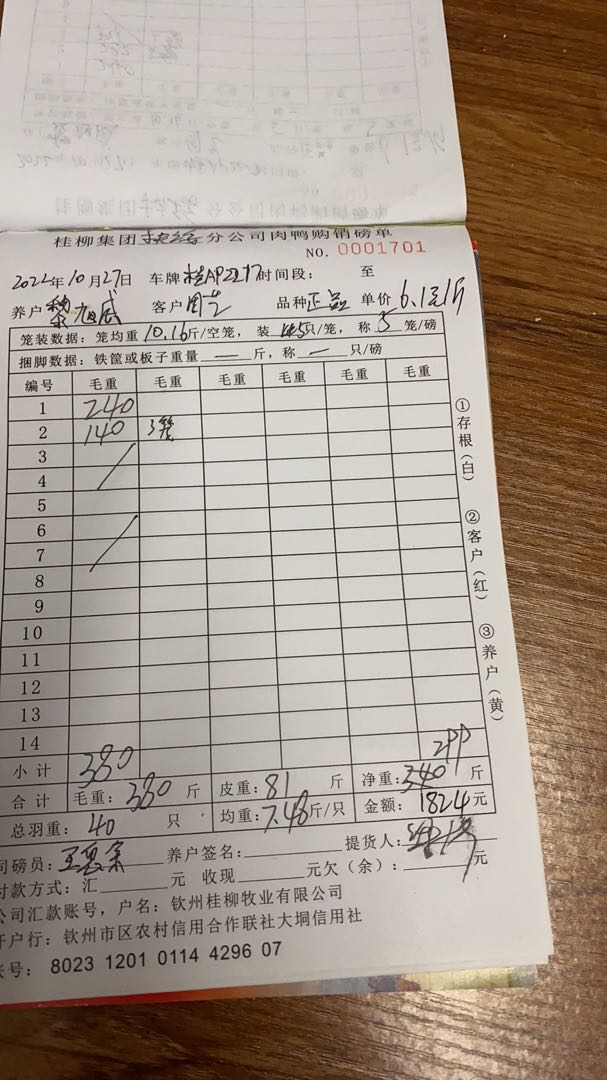 桂柳集团分公司肉鸭购销磅单
NO. 0001701
2022年10月27日 车牌桂AP2217时间段： 至
养户 黎旭威 客户 品种正品 单价6.1元/斤
笼装数据：笼均重10.16斤/空笼，装 只/笼，称5笼/磅
捆脚数据：铁筐或板子重量—斤，称—只/磅
编号 毛重 毛重 毛重 毛重 毛重 毛重
1 240
2 140 3笼
3
4
5
6
7
8
9
10
11
12
13
14
小计 380 299
合计 毛重：380 斤 皮重：81 斤 净重：340 斤
总羽重：40 只 均重：7.48斤/只 金额：1824元
司磅员： 养户签名： 提货人：
付款方式：汇 元 收现 元欠（余）： 元
公司汇款账号，户名：钦州桂柳牧业有限公司
开户行：钦州市区农村信用合作联社大垌信用社
账号：8023 1201 0114 4296 07
①存根（白）
②客户（红）
③养户（黄）